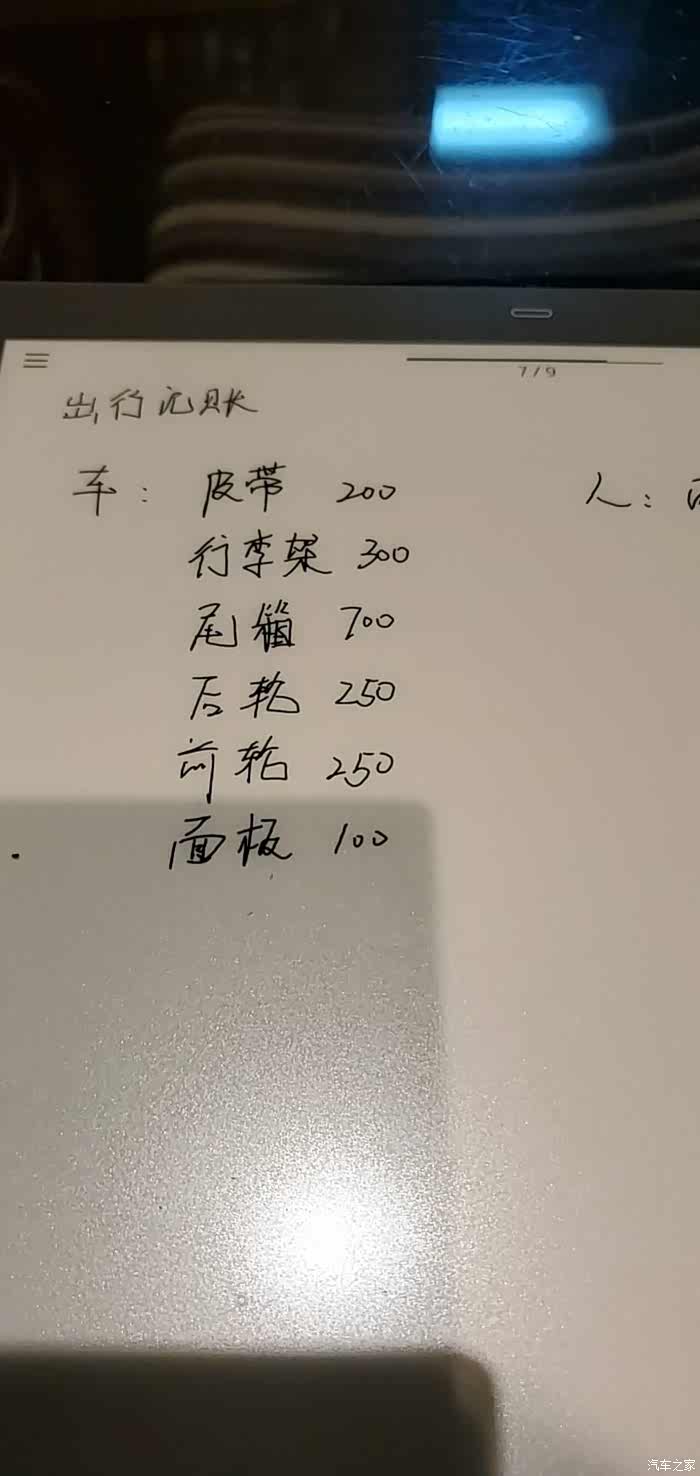 7/9
出行记账
车： 皮带 200 人：
行李架 300
尾箱 700
后轮 250
前轮 250
面板 100
汽车之家